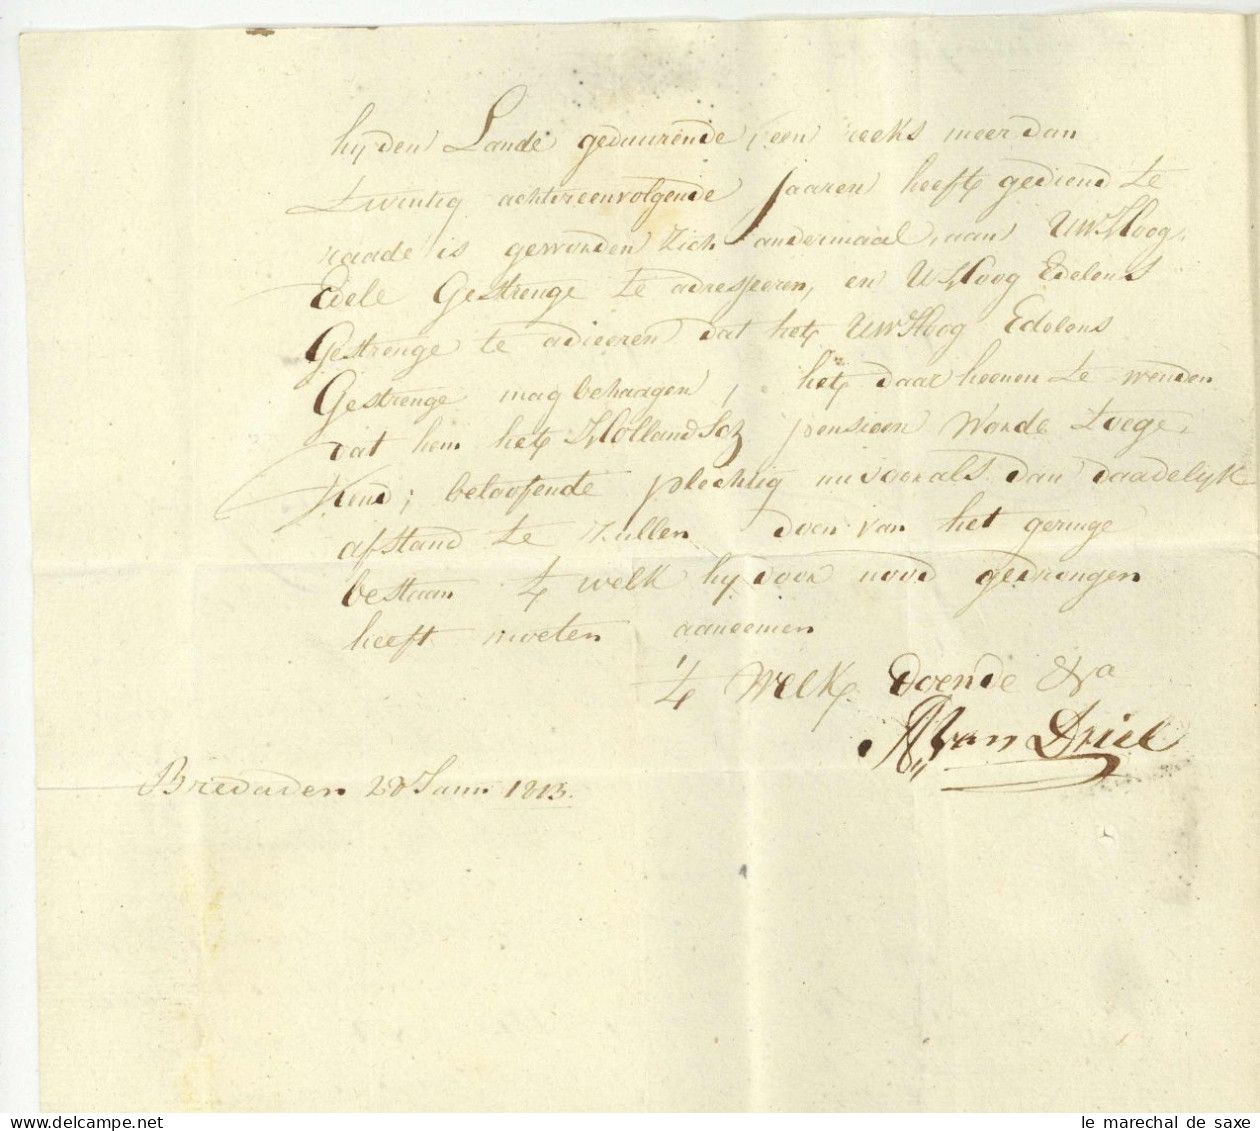 hy den Lande geduurende een reeks meer dan
twintig achtereenvolgende Jaaren heeft gediend te
raade is geworden zich andermaal, aan UwHoog
Edele Gestrenge te adresseeren, en UwHoog Edelens
Gestrenge te adieeren dat het UwHoog Edelens
Gestrenge mag behaagen, het daar heenen te wenden
dat hem het Hollandsch pensioen Worde toege,
kend; beloofende plechtig nu voor als dan daadelyk
afstand te zullen doen van het geringe
bestaan 't welk hy door nood gedrongen
heeft moeten aaneemen
't Welk doende &a
van Driel
Bredaden 28 Jann 1813.
delcampe.net
le marechal de saxe